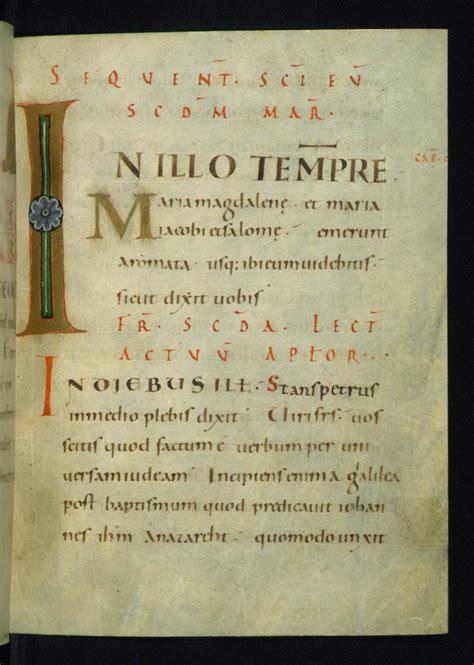 SEQUENT̄. SC̄I EŪ
SCD̄M MAR̄.
IN ILLO TEMPRE
Maria magdalenę. et maria
iacobi et salome. emerunt
aromata. usq; ibi eum uidebitis.
sicut dixit uobis
FR̄. SCD̄A. LECT̄
ACTUŪ APTOR̄.
IN DIEBUS ILL. Stans petrus
in medio plebis dixit. Uiri frs̄. uos
scitis quod factum ē uerbum per uni
uersam iudeam. Incipiens enim a galilea
post baptismum quod predicauit iohan
nes ihm̄ a nazareht. quomodo unxit